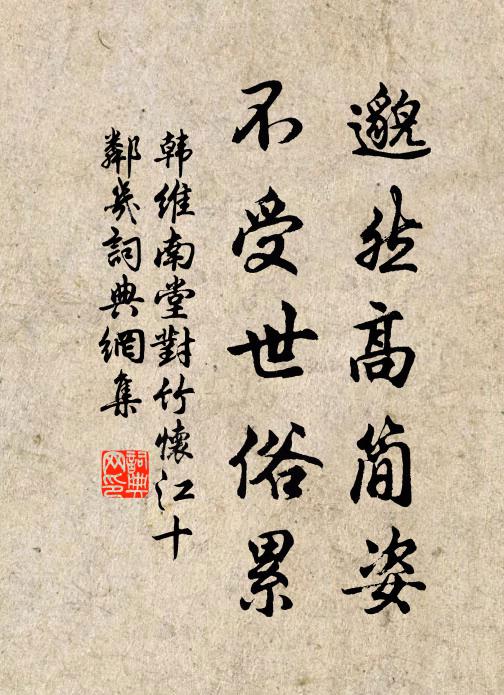 邈然高简姿
不受世俗累
韩维南堂對竹懷江十
鄰幾詞典網集
詞典网印